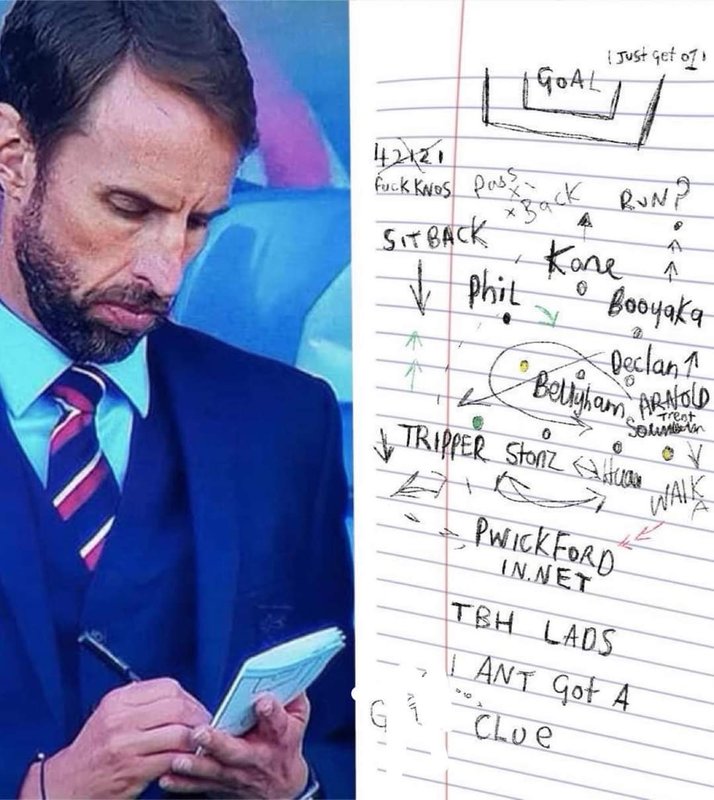 I Just get it!
GOAL
42121
FUCK KNOS
Pass
Back
RUN?
SIT BACK
Kane
Phil
Booyaka
Declan
Bellyham
ARNOLD
Trent
TRIPPER
Stonz
WALK
A
PWICKFORD
IN.NET
TBH LADS
I ANT Got A
CLUE
G